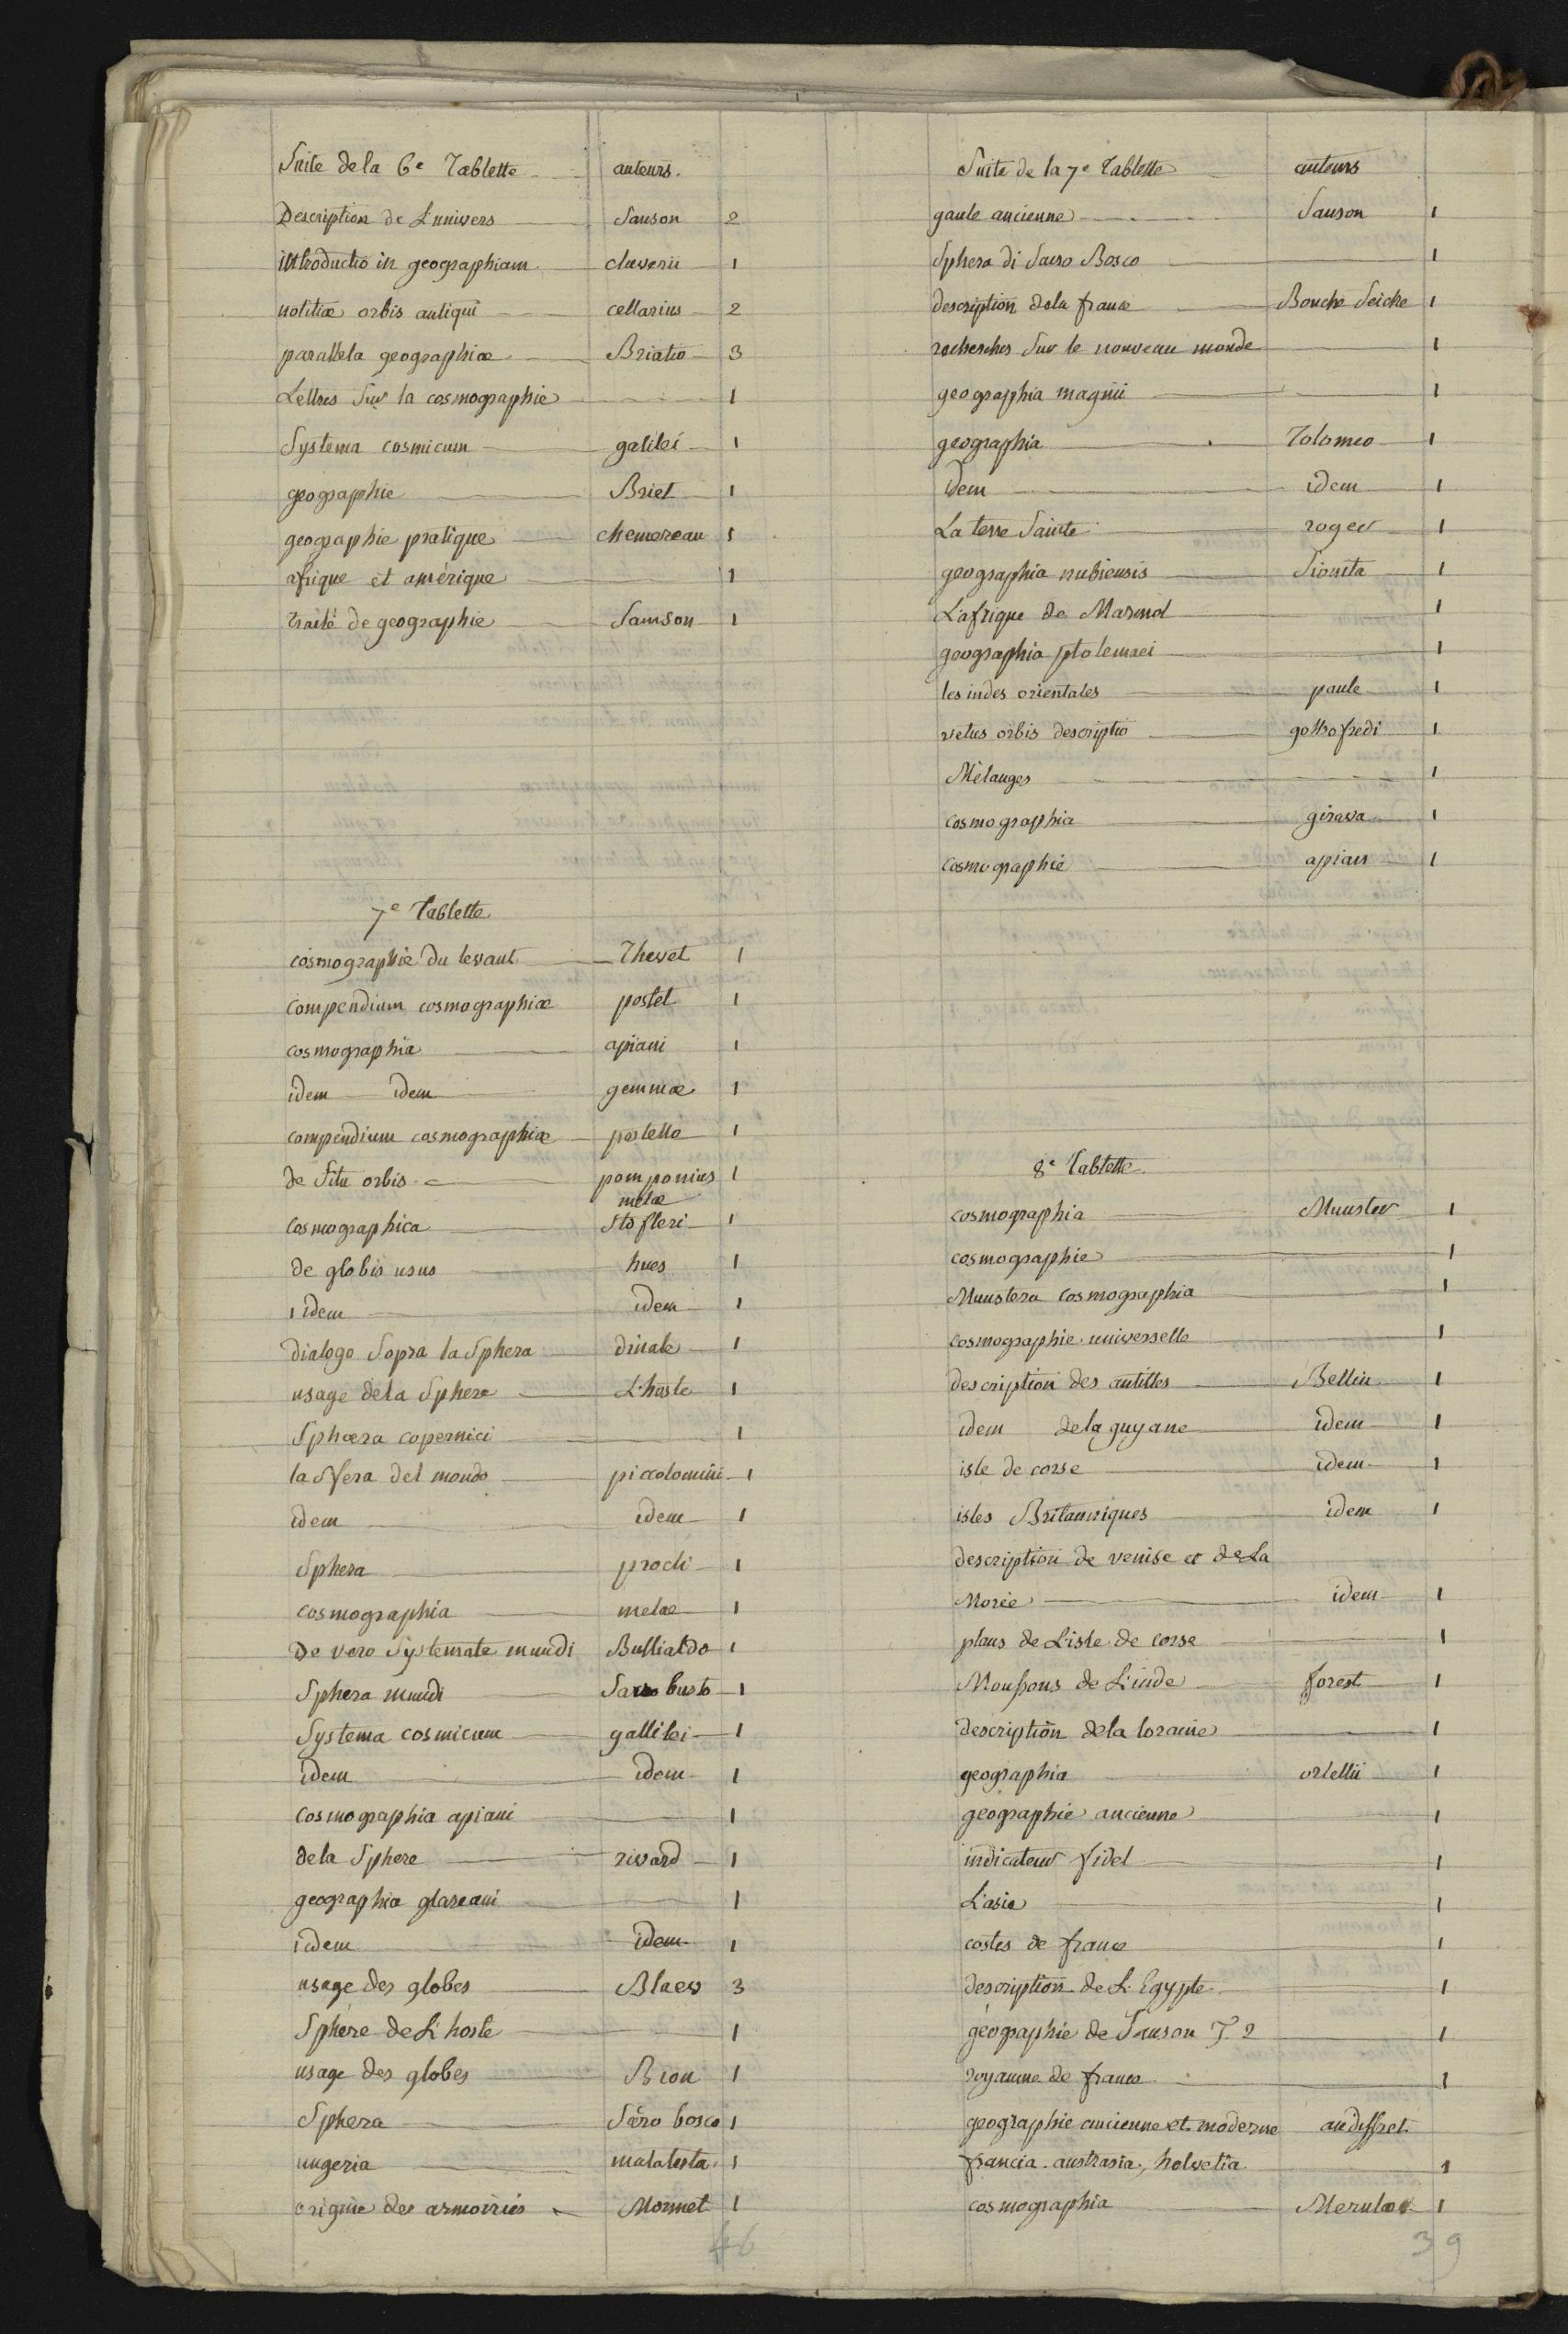 Suite de la 6e Tablette auteurs.
Description de L'univers Sanson 2
introductio in geographiam cluverii 1
notitiæ orbis antiqui cellarius 2
parallela geographiæ Brietio 3
Lettres Sur la cosmographie 1
Systema cosmicum galilei 1
geographie Briet 1
geographie pratique chemereau 1
afrique et amérique 1
traité de geographie Samson 1
7e Tablette
cosmographie du levant Thevet 1
compendium cosmographiæ postel 1
cosmographia apiani 1
idem idem gemmæ 1
compendium cosmographiæ postello 1
de Situ orbis pomponius 1
melæ
cosmographica Stofleri 1
de globis usus hues 1
idem idem 1
dialogo Sopra la Sphera 1
usage de la Sphere L'hoste 1
Sphæra copernici 1
la Sfera del mondo piccolomini 1
idem idem 1
Sphera procli 1
cosmographia melæ 1
De vero Systemate mundi Bullialdo 1
Sphera mundi Sacro busto 1
Systema cosmicum gallilei 1
idem idem 1
cosmographia apiani 1
de la Sphere rivard 1
geographia glareani 1
idem idem 1
usage des globes Blaew 3
Sphère de L'hoste 1
usage des globes Bion 1
Sphera Sacro bosco 1
ungeria malatesta 1
origine des armoiries Monnet 1
46
Suite de la 7e Tablette auteurs
gaule ancienne Sanson 1
Sphera di Sacro Bosco 1
description de la france Bouche Seiche 1
recherches Sur le nouveau monde 1
geographia magnii 1
geographia Tolomeo 1
idem idem 1
La terre Sainte roger 1
geographia nubiensis Sionita 1
L'afrique de Marmol 1
geographia ptolemaei 1
les indes orientales paule 1
vetus orbis descriptio gottofredi 1
Mélanges 1
cosmographia girava 1
cosmographie apian 1
8e Tablette
cosmographia Munster 1
cosmographie 1
Munstera cosmographia 1
cosmographie universelle 1
description des antilles Bellin 1
idem de la guyane idem 1
isle de corse idem 1
isles Britanniques idem 1
description de venise et de La
Morée idem 1
plans de L'isle de corse 1
Moussons de L'inde forest 1
description de la loraine 1
geographia ortellii 1
geographie ancienne 1
indicateur fidel 1
L'asie 1
costes de france 1
description de L'Egypte 1
géographie de Sanson T 2 1
royaume de france 1
geographie ancienne et moderne audiffret
francia, austrasia, helvetia 1
cosmographia Merulæ 1
39